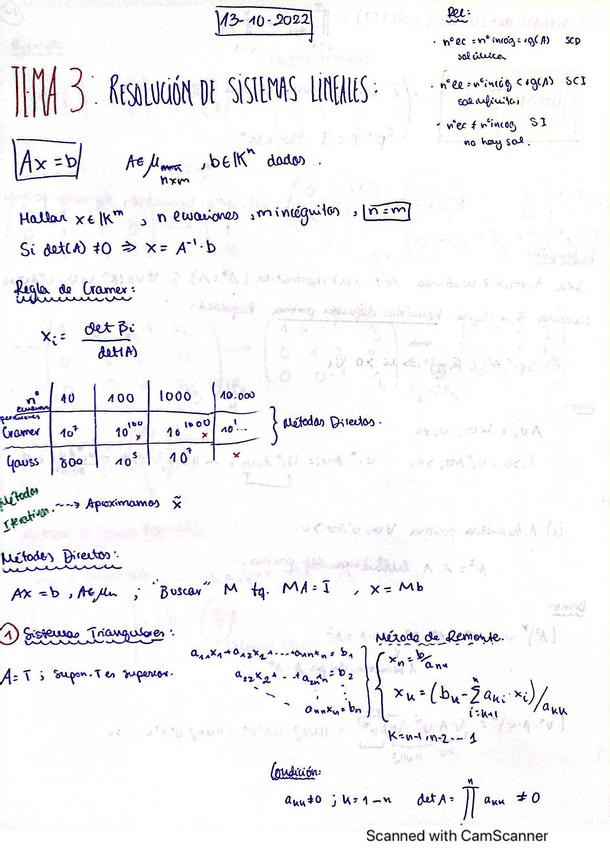 13-10-2022
Rec:
· nº ec = nº incóg = rg(A) SCD
sol única
· nº ec = nº incóg < rg(A) SCI
sol infinitas
· nº ec ≠ nº incog SI
no hay sol.
TEMA 3: RESOLUCIÓN DE SISTEMAS LINEALES:
Ax = b A ∈ M n×m , b ∈ IKⁿ dados.
Hallar x ∈ IKᵐ, n ecuaciones, m incógnitas, n=m
Si det(A) ≠ 0 ⇒ x = A⁻¹·b
Regla de Cramer:
xᵢ = det Bᵢ / det(A)
nº ecuaciones 10 100 1000 10.000
operaciones
Cramer 10⁷ 10¹⁰⁰ x 10¹⁰⁰⁰ x 10¹... } Métodos Directos.
Gauss 800 10⁵ 10⁷ x
Métodos
Iterativos. ---> Aproximamos x̃
Métodos Directos:
Ax = b, A ∈ Mn ; "Buscar" M tq. MA = I , x = Mb
1 Sistemas Triangulares: Método de Remonte.
A = T ; supon. T es superior.
a₁₁x₁ + a₁₂x₂ + ... a₁ₙxₙ = b₁
a₂₂x₂ + ... + a₂ₙxₙ = b₂
aₙₙxₙ = bₙ
xₙ = b/aₙₙ
xₖ = (bₖ - Σⁿᵢ₌ₖ₊₁ aₖᵢ·xᵢ)/aₖₖ
K = n-1, n-2 ... 1
Condición:
aₖₖ ≠ 0 ; k = 1 – n det A = ∏ⁿ aₖₖ ≠ 0
Scanned with CamScanner